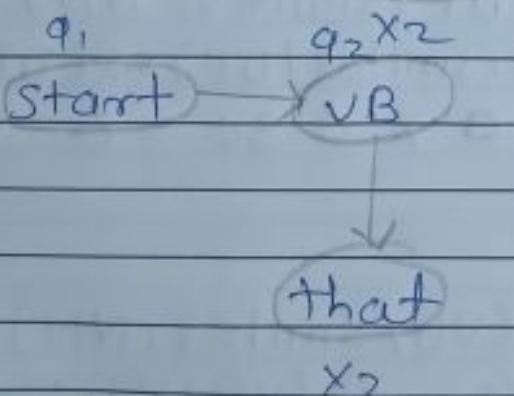 q₁ q₂ X2
Start VB
that
X2